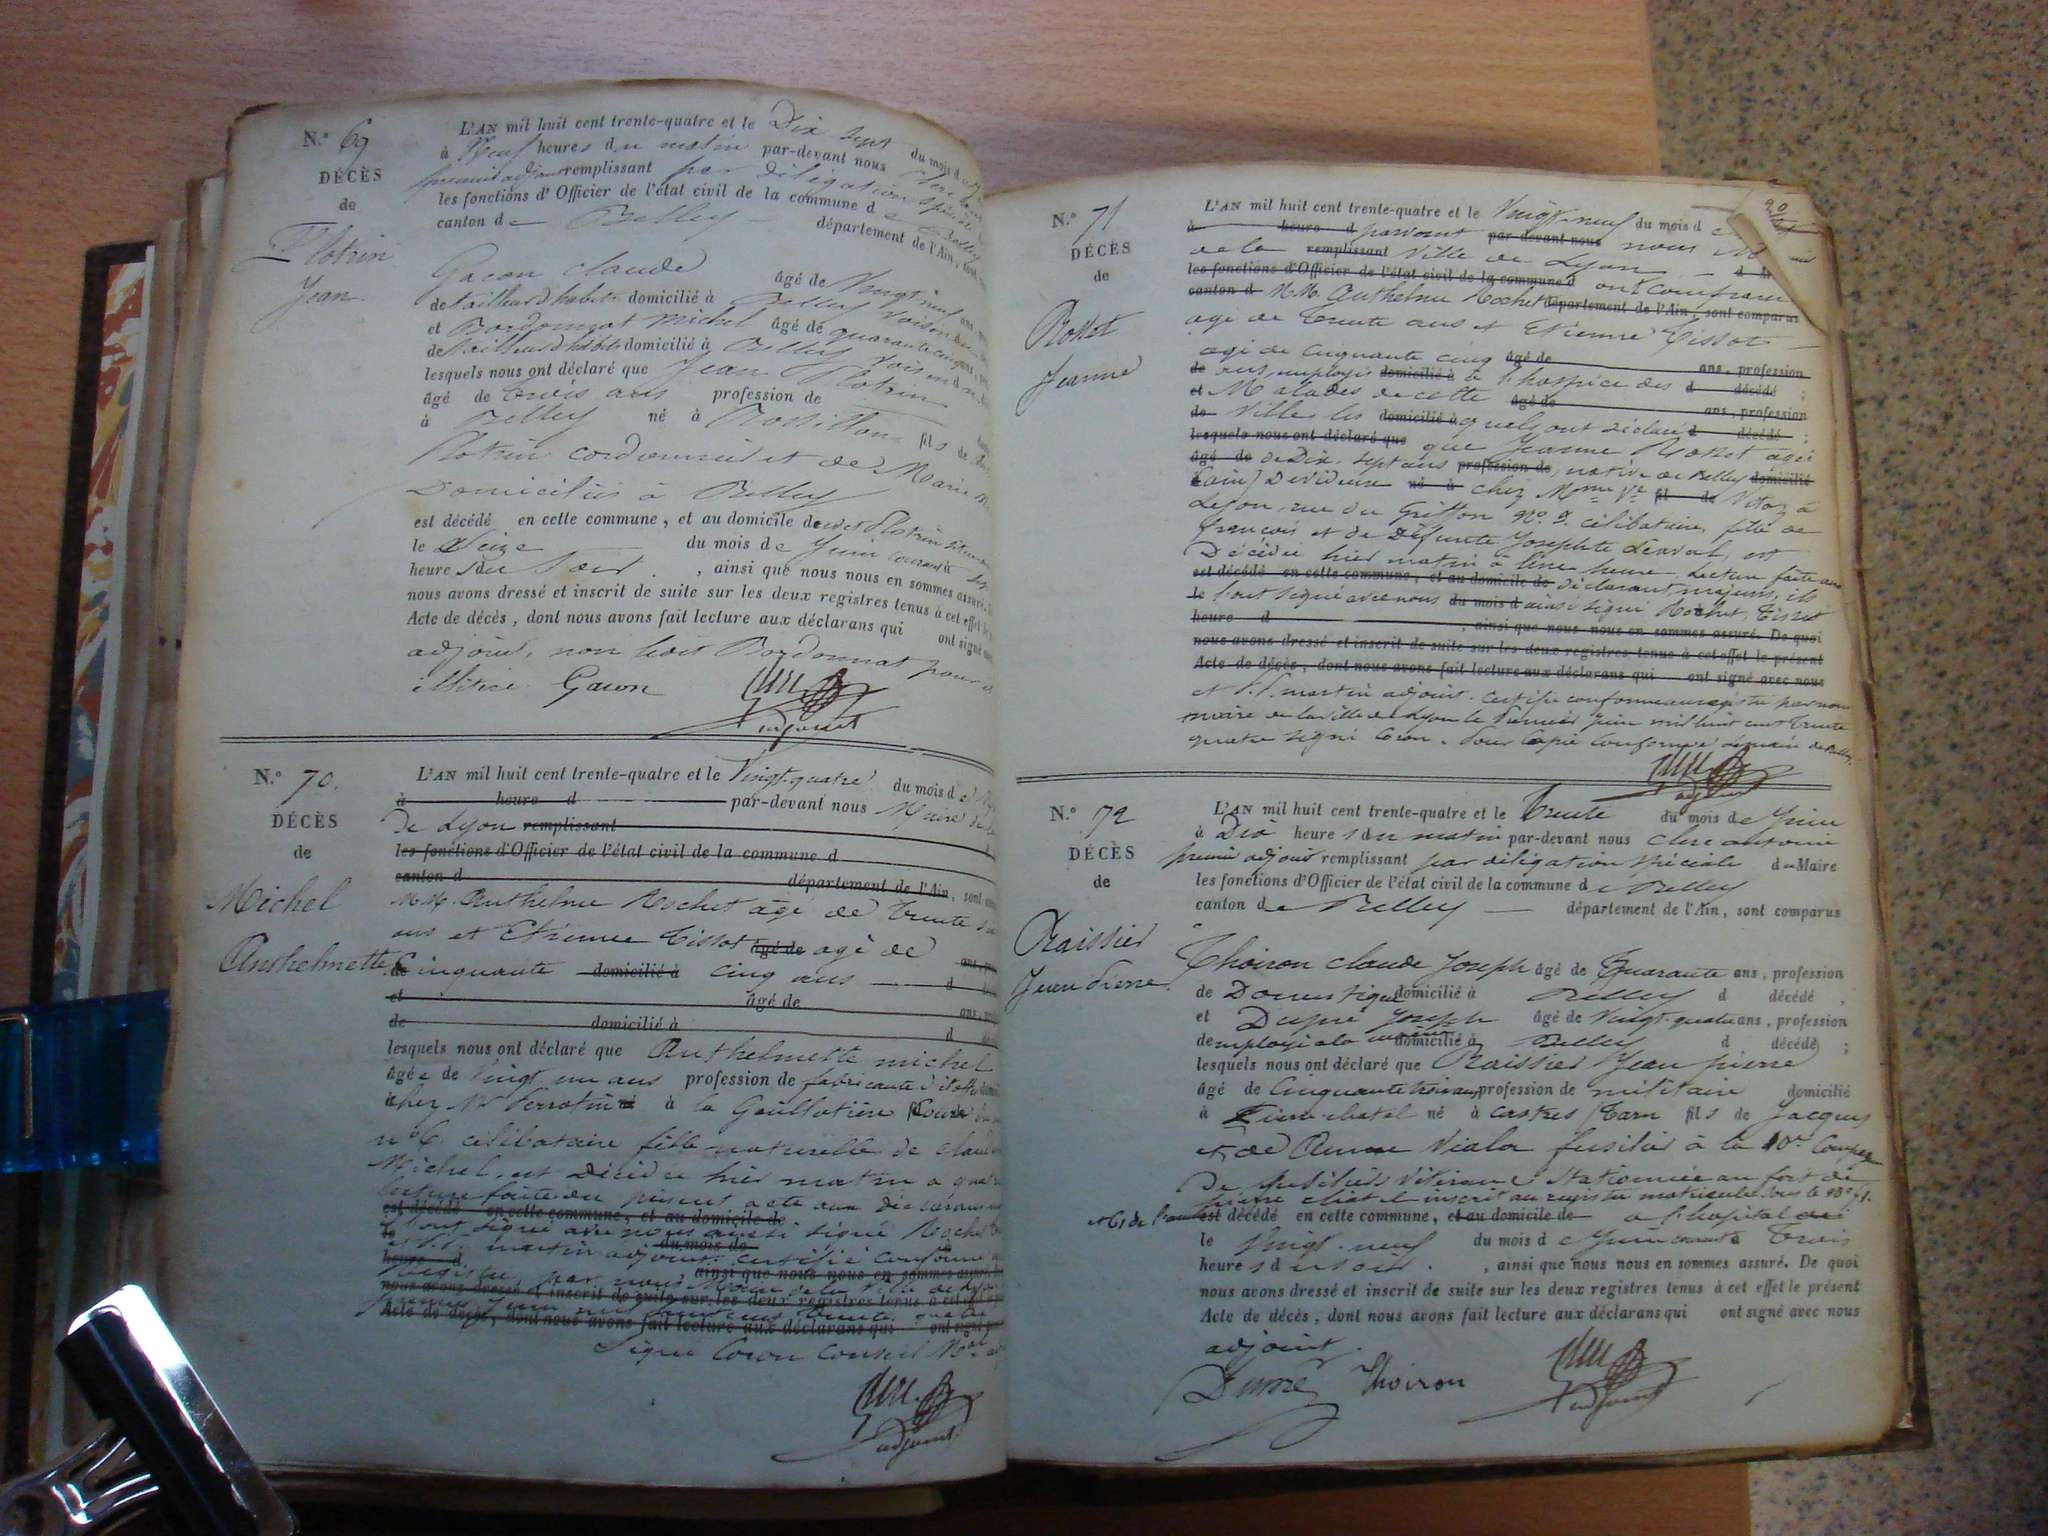 N.° 69
DÉCÈS
de
Flotrin
Jean.
L'AN mil huit cent trente-quatre et le Dix sept du mois d
à Neuf heures du matin par-devant nous Clerc
premier adjoint remplissant par délégation spéciale
les fonctions d'Officier de l'état civil de la commune de Belley
canton de Belley département de l'Ain,
Gacon claude âgé de Vingt neuf ans
de tailleur d'habits domicilié à Belley voisin
et Bordonnat Michel âgé de quarante cinq ans
de tailleur d'habits domicilié à Belley voisin d
lesquels nous ont déclaré que Jean Flotrin
âgé de trois ans profession de
à Belley né à Rossillon fils de
Flotrin cordonnier et de Marie
Domiciliés à Belley
est décédé en cette commune, et au domicile de
le Seize du mois de Juin courant à sept
heures du Soir, ainsi que nous nous en sommes assuré.
nous avons dressé et inscrit de suite sur les deux registres tenus à cet effet le
Acte de décès, dont nous avons fait lecture aux déclarans qui ont signé
adjoint, non ledit Bordonnat pour
illitéré Gacon
adjoint
N.° 70.
DÉCÈS
de
Michel
Anthelmette
L'AN mil huit cent trente-quatre et le Vingt-quatre du mois de
à heure d par-devant nous Maire de la
de Lyon remplissant
les fonctions d'Officier de l'état civil de la commune d
canton d département de l'Ain, sont
MM. Anthelme Rochet âgé de trente
ans et Etienne Tissot âgé de âgé de
de Cinquante domicilié à cinq ans
et âgé de
de domicilié à
lesquels nous ont déclaré que Anthelmette michel
âgée de Vingt un ans profession de fabricante d'étoffes
chez Mr Perrotin né à la Guillotière
n° 6. célibataire fille naturelle de
Michel, est Décédée hier matin a quatre
lecture faite du présent acte aux déclarans
est décédé en cette commune, et au domicile de
l'ont signé avec nous ainsi signé Rochet
martin adjoint. certifié conforme
registre par nous
ainsi que nous nous en sommes assuré
nous avons dressé et inscrit de suite sur les deux registres tenus à cet effet
Acte de décès, dont nous avons fait lecture aux déclarans qui ont signé
Signé Coron
adjoint
N.° 71
DÉCÈS
de
Rosset
Jeanne
L'AN mil huit cent trente-quatre et le Vingt-neuf du mois d
à heure d pardevant par-devant nous nous
de la remplissant Ville de Lyon
les fonctions d'Officier de l'état civil de la commune d ont comparu
canton d MM. Anthelme Rochet département de l'Ain, sont comparus
âgé de Trente ans et Etienne Tissot
âgé de Cinquante cinq âgé de ans, profession
de ans employés domicilié à à l'hospice des d décédé;
et Malades de cette âgé de ans, profession
de Ville les domicilié à quels ont déclaré d décédé;
lesquels nous ont déclaré que que Jeanne Rosset âgée
âgé de de Dix sept ans profession de native de Belley domicilié
(ain) Dévideuse né à chez Mme Ve fil de
Lyon, rue du Griffon N° 9. célibataire, fille de
francois et de Défunte Josephte est
Décédée hier matin à Une heure. Lecture faite aux
est décédé en cette commune, et au domicile de déclarants majeurs, ils
le l'ont signé avec nous du mois d ainsi signé Rochet, Tissot
heure d, ainsi que nous nous en sommes assuré. De quoi
nous avons dressé et inscrit de suite sur les deux registres tenus à cet effet le présent
Acte de décès, dont nous avons fait lecture aux déclarans qui ont signé avec nous
martin adjoint. certifié conforme au registre par nous
maire de la ville de Lyon le premier Juin mil huit cent Trente
quatre signé Coron. Pour Copie Conforme
adjoint
N.° 72
DÉCÈS
de
Raissier
Jean Pierre
L'AN mil huit cent trente-quatre et le Trente du mois de Juin
à Dix heures du matin par-devant nous clerc antoine
premier adjoint remplissant par délégation spéciale du Maire
les fonctions d'Officier de l'état civil de la commune de Belley
canton de Belley département de l'Ain, sont comparus
Thoiron claude Joseph âgé de Quarante ans, profession
de Domestique domicilié à Belley d décédé,
et Dupré Joseph âgé de Vingt-quatre ans, profession
d'employé a la mairie domicilié à Belley d décédé;
lesquels nous ont déclaré que Raissier Jean pierre
âgé de Cinquante trois ans, profession de militaire domicilié
à Pierre-chatel né à castres (Tarn fils de Jacques
et de Anne Viala fusilier à la 10e Compagnie
De fusiliers Vétérans stationnée au fort de
pierre chatel inscrit au registre matricule sous le n°
est décédé en cette commune, et au domicile de a l'hopital
le Vingt-neuf du mois de Juin courant à Trois
heures du soir., ainsi que nous nous en sommes assuré. De quoi
nous avons dressé et inscrit de suite sur les deux registres tenus à cet effet le présent
Acte de décès, dont nous avons fait lecture aux déclarans qui ont signé avec nous
adjoint.
Dupré Thoiron
adjoint